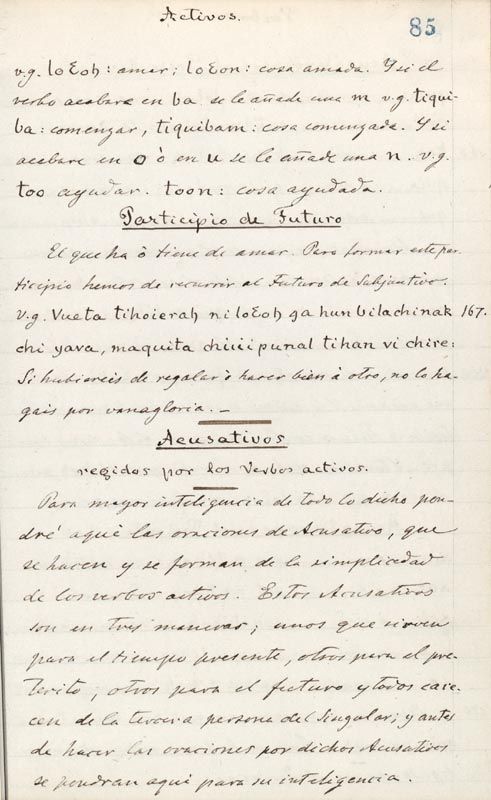 Activos.
85
v.g. loƐoh: amar; loƐon: cosa amada. Y si el
verbo acabare en ba se le añade una m v.g. tiqui-
ba: comenzar, tiquibam: cosa comenzada. Y si
acabare en o ò en u se le añade una n. v.g.
too ayudar. toon: cosa ayudada.
Participio de Futuro
El que ha ò tiene de amar. Para formar este par-
ticipio hemos de recurrir al Futuro de Subjuntivo.
v.g. Vueta tihoierah ni loƐoh ga hun bilachinak 167.
chi yava, maquita chiiiipunal tihan vi chire:
Si hubiereis de regalar ò hacer bien à otro, no lo ha-
gais por vanagloria._
Acusativos
regidos por los Verbos activos.
Para mayor inteligencia de todo lo dicho pon-
dré aquì las oraciones de Acusativo, que
se hacen y se forman de la simplicedad
de los verbos activos. Estos Acusativos
son en tres maneras; unos que sirven
para el tiempo presente, otros para el pre-
terito; otros para el futuro y todos care-
cen de la tercera persona del Singular; y antes
de hacer las oraciones por dichos Acusativos
se pondran aqui para su inteligencia.